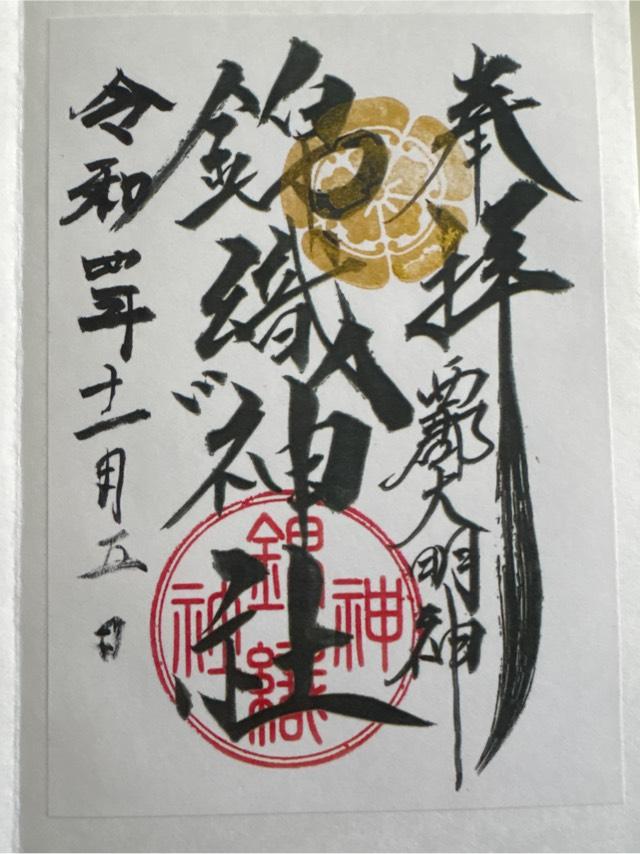 奉拝
大明神
錦織神社
令和四年十一月五日
錦織
神社